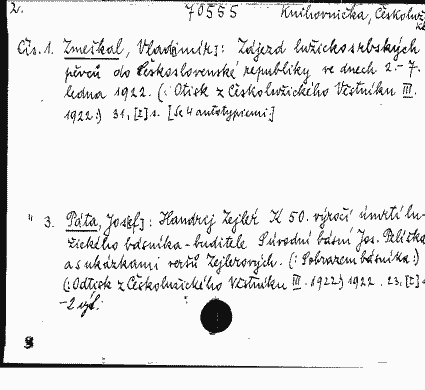 2. 70555 Knihovnička, Českoluž
Čís. 1. Zmeškal, Vladimír]: Zájezd lužickosrbských
pěvců do Československé republiky ve dnech 2.-7.
ledna 1922. (: Otisk z Českolužického Věstníku III.
1922:) 31, [I] s. [Se 4 autotypiemi]
" 3. Páta, Josef]: Handrej Zejleŕ K 50. výročí úmrtí lu-
žického básníka-buditele Původní básní Jos. Pelíška
a s ukázkami veršů Zejlerových. (: S obrazem básníka:)
(: Odtisk z Českolužického Věstníku III. 1922:) 1922. 23, [I] s
- 2 výt.